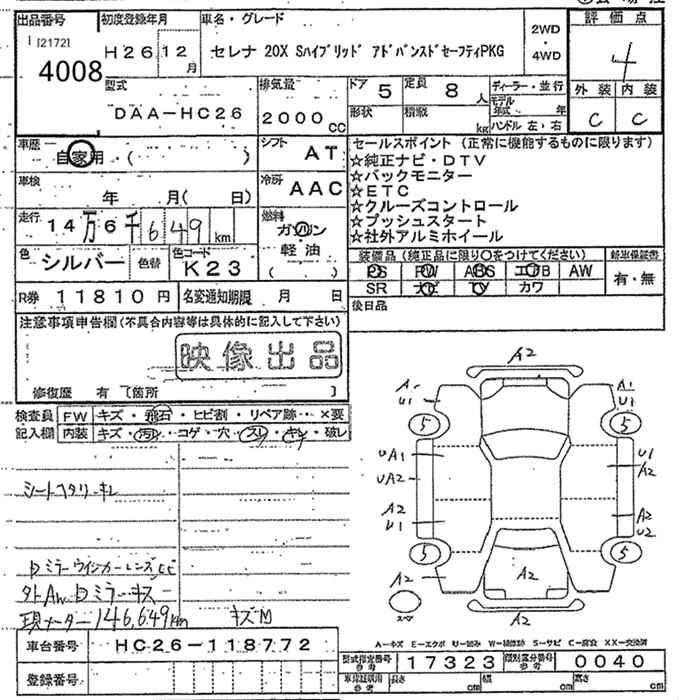 出品番号
[21721]
4008
初度登録年月
H26 12月
車名・グレード
セレナ 20X Sハイブリッド アドバンスドセーフティPKG
2WD
・
4WD
評価点
4
外装 内装
C C
型式
DAA-HC26
排気量
2000CC
ドア 5
定員 8人
形状
積載 kg
ディーラー・並行
モデル年式 年
ハンドル 左・右
車歴
自家用 ( )
シフト
AT
車検
年 月( 日)
冷房
AAC
走行
14万6千649km
燃料
ガソリン
軽油
( )
色
シルバー
色替
色コード
K23
セールスポイント (正常に機能するものに限ります)
☆純正ナビ・DTV
☆バックモニター
☆ETC
☆クルーズコントロール
☆プッシュスタート
☆社外アルミホイール
装備品 (純正品に限り○をつけてください)
新車保証書
PS PW ABS エアB AW
SR ナビ TV カワ
有・無
R券 11810円
名変通知期限 月 日
後日品
注意事項申告欄(不具合内容等は具体的に記入して下さい)
映像出品
修復歴 有 〔箇所 〕
検査員
記入欄
FW キズ・飛石・ヒビ割・リペア跡・×要
内装 キズ・汚れ・コゲ・穴・スレ・キレ・破レ
シートヘタリ・キレ
Dミラーウインカーレンズ
外AW Dミラーキズ
現メーター146,649km
キズM
A2
U1
5
A1
U1
5
UA1
UA2
A2
U1
U1
A2
A2
U2
5
5
A2
A2
A2
スペア
A-キズ E-エクボ U-凹み W-補修跡 S-サビ C-腐食 XX-交換済
車台番号
HC26-118772
登録番号
型式指定番号
参考
17323
類別区分番号
参考
0040
車庫証明用
参考
長さ cm
幅 cm
高さ cm